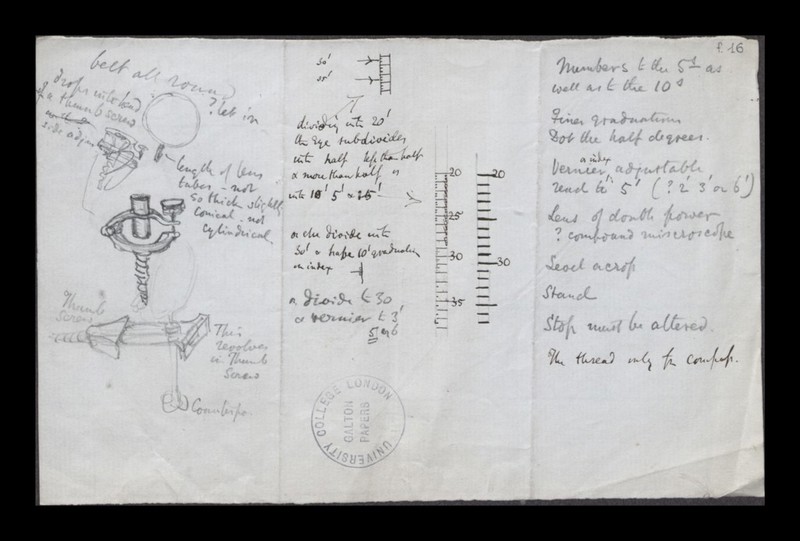 f. 16
belt all round
? let in
drops into bed
of a thumb screw
side adjust
length of lens
tubes - not
so thick slightly
conical - not
cylindrical
Thumb
Screw
This
revolves
in Thumb
Screw
Counterpo
30'
dividing into 20'
the eye subdivides
into half less than half
& more than half
into 10' 5' & 15'
or else divide into
30' & have 10' graduation
on index
or divide to 30
& vernier to 3'
5 or 6
20
25
30
35
20
30
UNIVERSITY COLLEGE LONDON
GALTON
PAPERS
Numbers to the 5s as
well as to the 10s
Finer graduations
Dot the half degrees.
a index
Vernier, adjustable
read to 5' (? 2' 3' or 6')
Lens of double power
? compound microscope
Level across
Stand
Stop must be altered.
The thread only for compass.